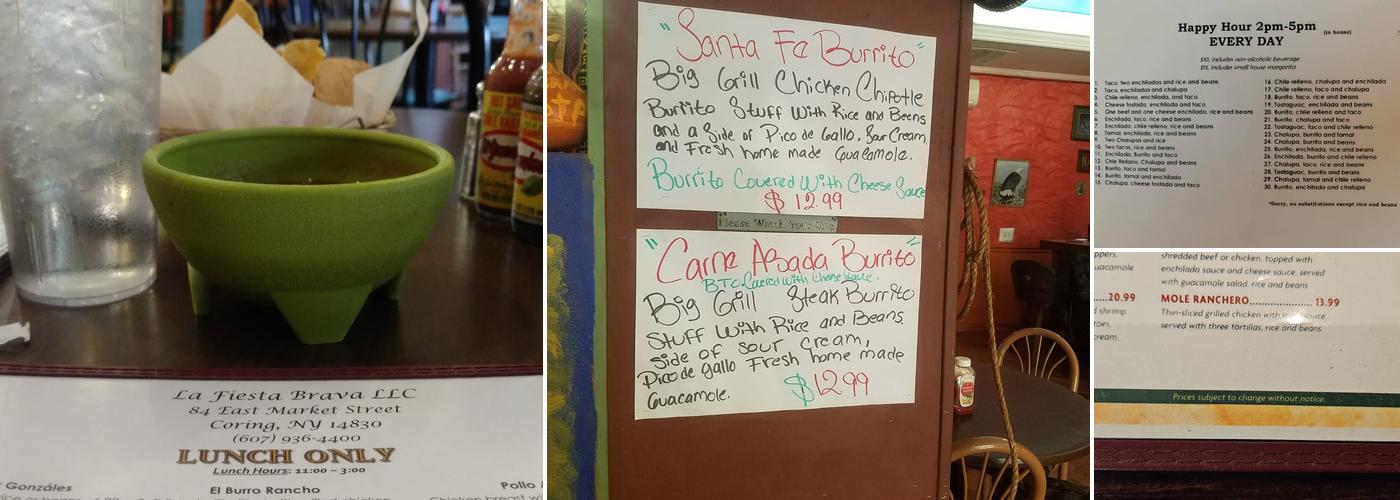 HOT SAUCE
La Fiesta Brava LLC
84 East Market Street
Coring, NY 14830
(607) 936-4400
LUNCH ONLY
Lunch Hours: 11:00 – 3:00
Gonzáles
El Burro Rancho
Pollo
"Santa Fe Burrito"
Big Grill Chicken Chipotle
Burrito Stuff With Rice and Beens
and a Side of Pico de Gallo, Sour Cream,
and Fresh home made Guacamole.
Burrito Covered With Cheese Sauce
$ 12.99
"Please Watch Your Step"
"Carne Asada Burrito"
BTO. Covered with Cheese Sauce.
Big Grill Steak Burrito
Stuff With Rice and Beans.
Side of sour cream,
Pico de gallo Fresh home made
Guacamole. $12.99
Happy Hour 2pm-5pm (in house)
EVERY DAY
$10, includes non-alcoholic beverage
$15, includes small house margarita
1. Taco, two enchiladas and rice and beans
2. Taco, enchiladas and chalupa
3. Chile relleno, enchilada, and taco
4. Cheese tostada, enchilada and taco
5. One beef and one cheese enchilada, rice and beans
6. Enchilada, taco, rice and beans
7. Enchilada, chile relleno, rice and beans
8. Tamal, enchilada, rice and beans
9. Two Chalupas and rice
10. Two tacos, rice and beans
11. Enchilada, Burrito and taco
12. Chile Rellano, Chalupa and beans
13. Burrito, taco and tamal
14. Burrito, tamal and enchilada
15. Chalupa, cheese tostada and taco
16. Chile relleno, chalupa and enchilada
17. Chile relleno, taco and chalupa
18. Burrito, taco, rice and beans
19. Tostaguac, enchilada and beans
20. Burrito, chile relleno and taco
21. Burrito, chalupa and taco
22. Tostaguac, taco and chile relleno
23. Chalupa, burrito and tamal
24. Chalupa, burrito and beans
25. Burrito, enchilada, rice and beans
26. Enchilada, burrito and chile relleno
27. Chalupa, taco, rice and beans
28. Tostaguac, burrito and beans
29. Chalupa, tamal and chile relleno
30. Burrito, enchilada and chalupa
*Sorry, no substitutions except rice and beans
ppers,
uacamole
....20.99
d shrimp
toes,
cream.
shredded beef or chicken, topped with
enchilada sauce and cheese sauce, served
with guacamole salad, rice and beans
MOLE RANCHERO................ 13.99
Thin-sliced grilled chicken with mole sauce,
served with three tortillas, rice and beans
Prices subject to change without notice.